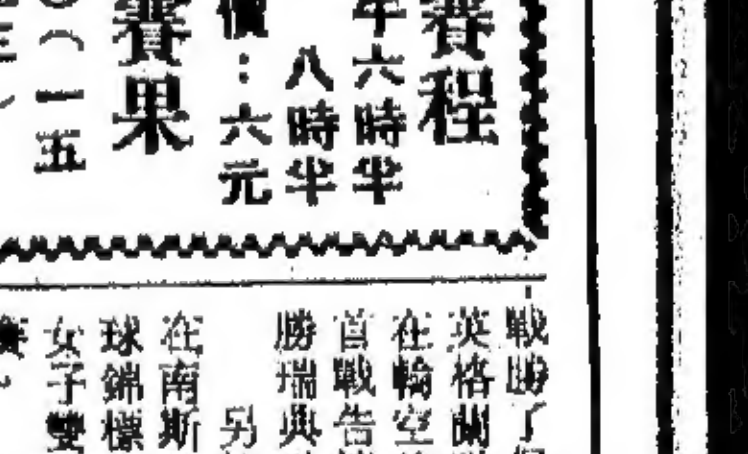 賽程
半六時半
八時半
價：六元
賽果
（一五
戰勝了
英格蘭
在輪空
首戰告
勝瑞典
另
在南斯
球錦標
女子雙
賽。